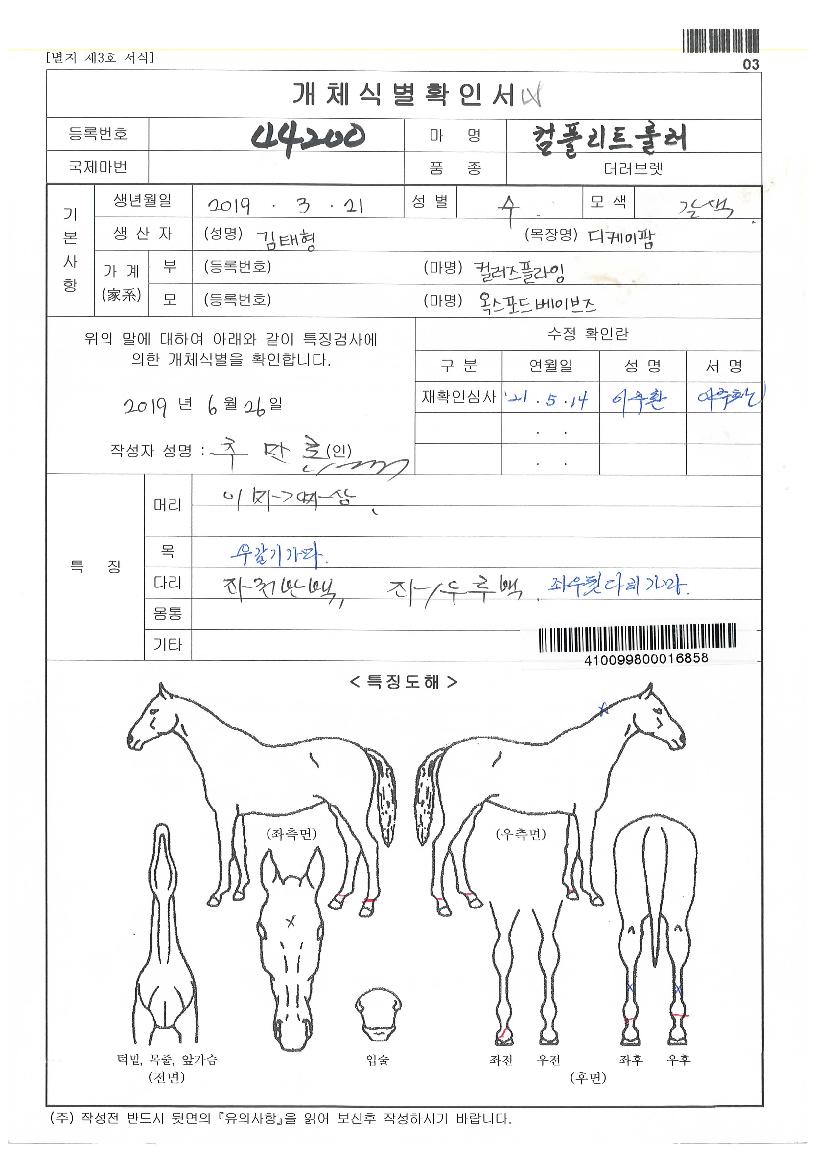 [별지 제3호 서식]
03
개체식별확인서
등록번호 44200 마 명 컴플리트룰러
국제마번 품 종 더러브렛
기본사항
생년월일 2019 . 3 . 21 성 별 수 모 색 갈색
생 산 자 (성명) 김태형 (목장명) 디케이팜
가 계 (家系)
부 (등록번호) (마명) 컬러즈플라잉
모 (등록번호) (마명) 옥스포드베이브즈
위의 말에 대하여 아래와 같이 특징검사에
의한 개체식별을 확인합니다.
2019 년 6 월 26 일
작성자 성명 : (인)
수정 확인란
구 분 연월일 성 명 서 명
재확인심사 '21 . 5 . 14 이주환 이주환
. .
. .
특 징
머리
목 우갈기가마.
다리 좌전반백, 좌/우후백, 좌우뒷다리가마.
몸통
기타
410099800016858
< 특징도해 >
(좌측면) (우측면)
턱밑, 목줄, 앞가슴 입술 좌전 우전 좌후 우후
(전면) (후면)
(주) 작성전 반드시 뒷면의 『유의사항』을 읽어 보신후 작성하시기 바랍니다.